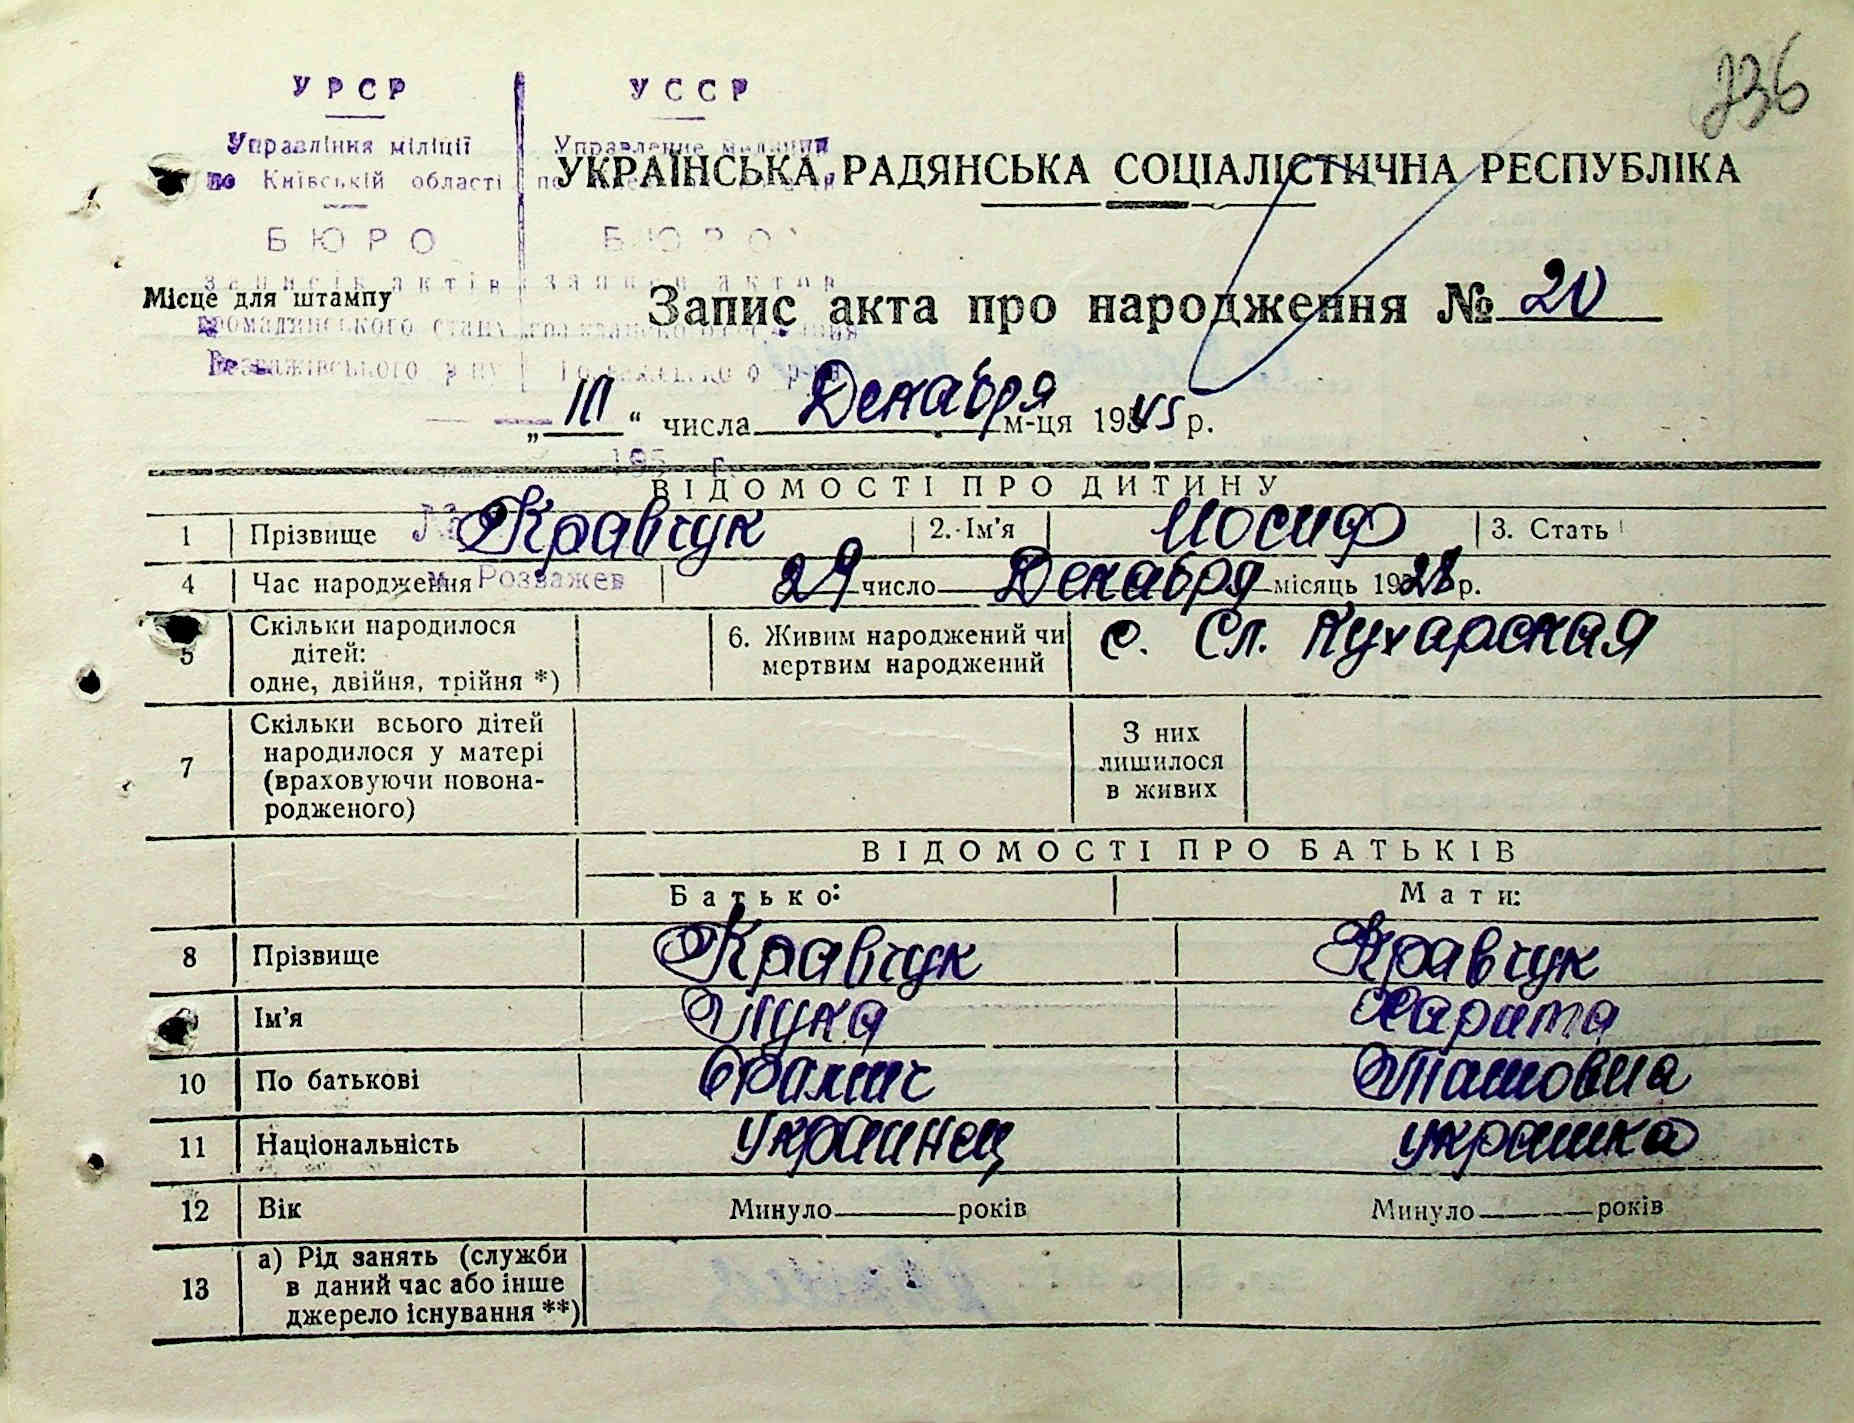 236
УРСР
УССР
Управління міліції
Управление милиции
по Київській області
по
УКРАЇНСЬКА РАДЯНСЬКА СОЦІАЛІСТИЧНА РЕСПУБЛІКА
БЮРО
БЮРО
записів актів
записи актов
Місце для штампу
Запис акта про народження № 20
громадянського стану
гражданского состояния
Розважівського р-ну
„ III “ числа Декабря м-ця 1945 р.
195 г.
ВІДОМОСТІ ПРО ДИТИНУ
1 Прізвище Кравчук 2. Ім'я Иосиф 3. Стать
4 Час народження 29 число Декабря місяць 1928 р.
м. Розважев
5 Скільки народилося дітей: одне, двійня, трійня *) 6. Живим народжений чи мертвим народжений с. Сл. Кухарская
7 Скільки всього дітей народилося у матері (враховуючи новонародженого) З них лишилося в живих
ВІДОМОСТІ ПРО БАТЬКІВ
Батько: Мати:
8 Прізвище Кравчук Кравчук
Ім'я Лука
10 По батькові
11 Національність украинец украинка
12 Вік Минуло років Минуло років
13 а) Рід занять (служби в даний час або інше джерело існування **)